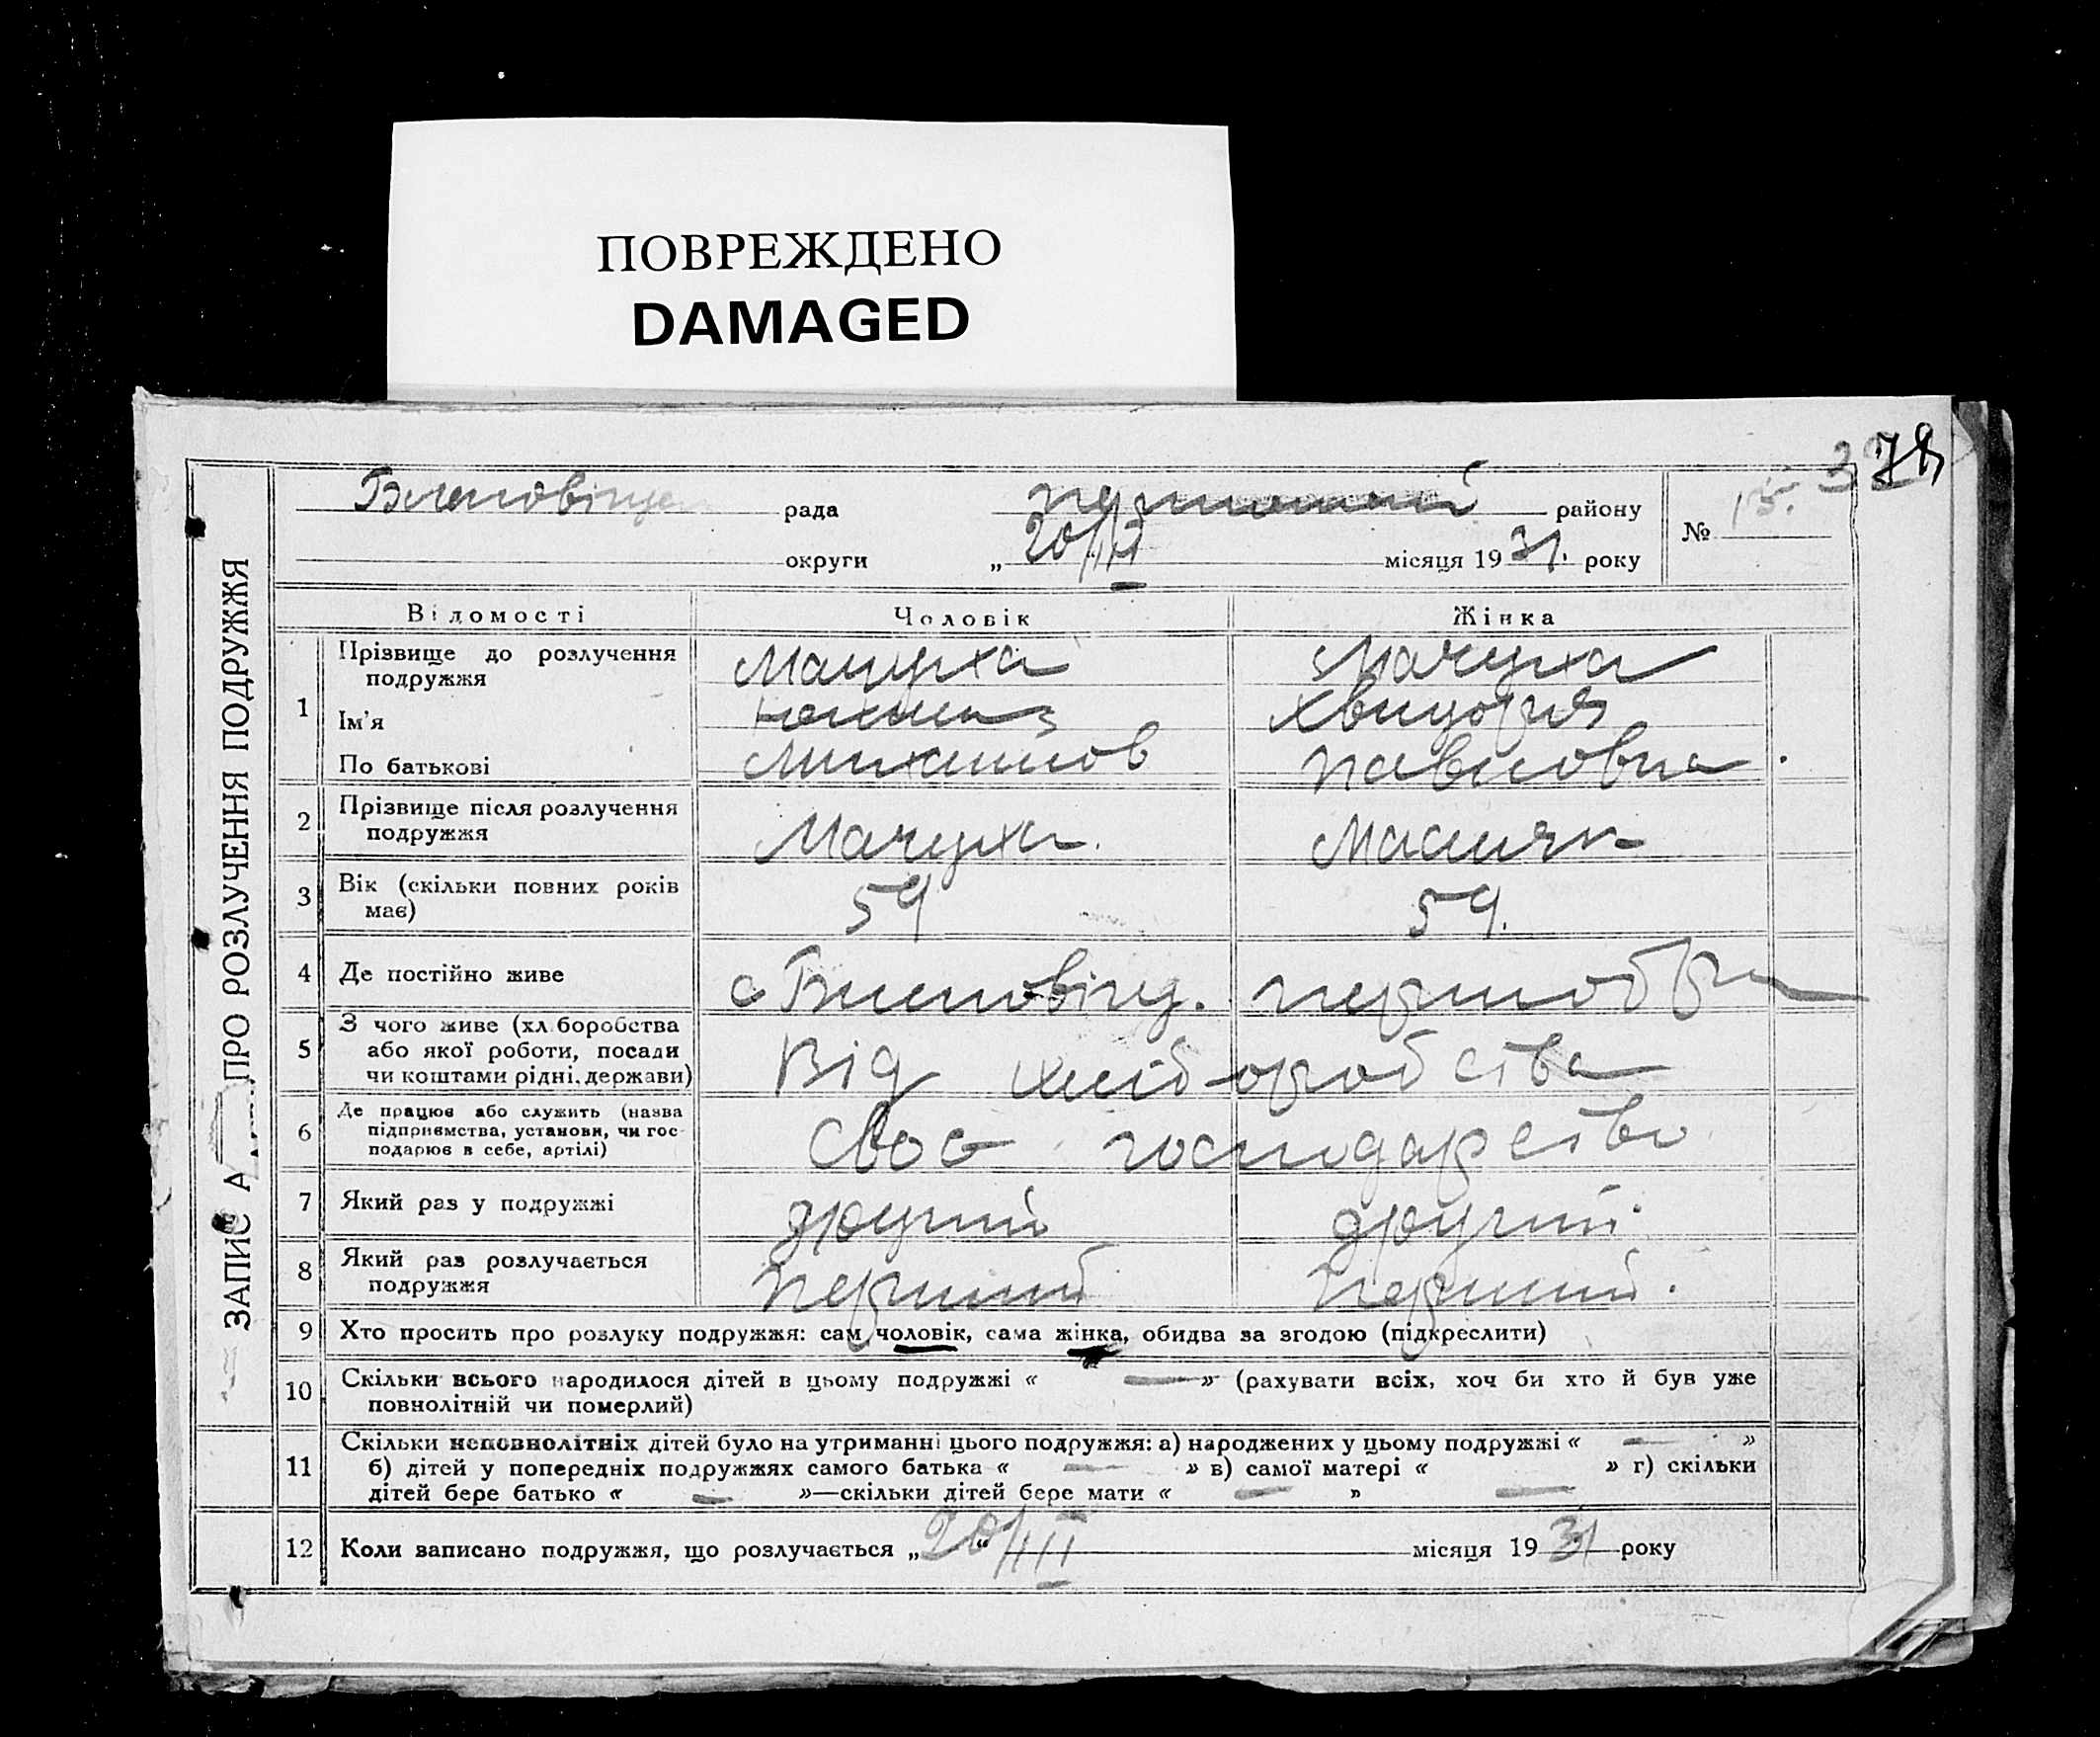 ПОВРЕЖДЕНО
DAMAGED
378
рада району № 15.
округи „ 20/III місяця 1931. року
ЗАПИС А ПРО РОЗЛУЧЕННЯ ПОДРУЖЖЯ
Відомості Чоловік Жінка
1 Прізвище до розлучення подружжя Мачуха Мачуха
Ім'я
По батькові Михайлов Павловна
2 Прізвище після розлучення подружжя Мачуха.
3 Вік (скільки повних років має) 59 59.
4 Де постійно живе с
5 З чого живе (хл.боробства або якої роботи, посади чи коштами рідні, держави) Від хліборобства
6 Де працює або служить (назва підприємства, установи, чи господарює в себе, артілі) Своє господарство
7 Який раз у подружжі другий другий.
8 Який раз розлучається подружжя Перший Перший.
9 Хто просить про розлуку подружжя: сам чоловік, сама жінка, обидва за згодою (підкреслити)
10 Скільки всього народилося дітей в цьому подружжі « — » (рахувати всіх, хоч би хто й був уже
повнолітній чи померлий)
11 Скільки неповнолітніх дітей було на утриманні цього подружжя: а) народжених у цьому подружжі « — »
б) дітей у попередніх подружжях самого батька « — » в) самої матері « — » г) скільки
дітей бере батько « — »—скільки дітей бере мати « — »
12 Коли записано подружжя, що розлучається „20“/III місяця 1931 року